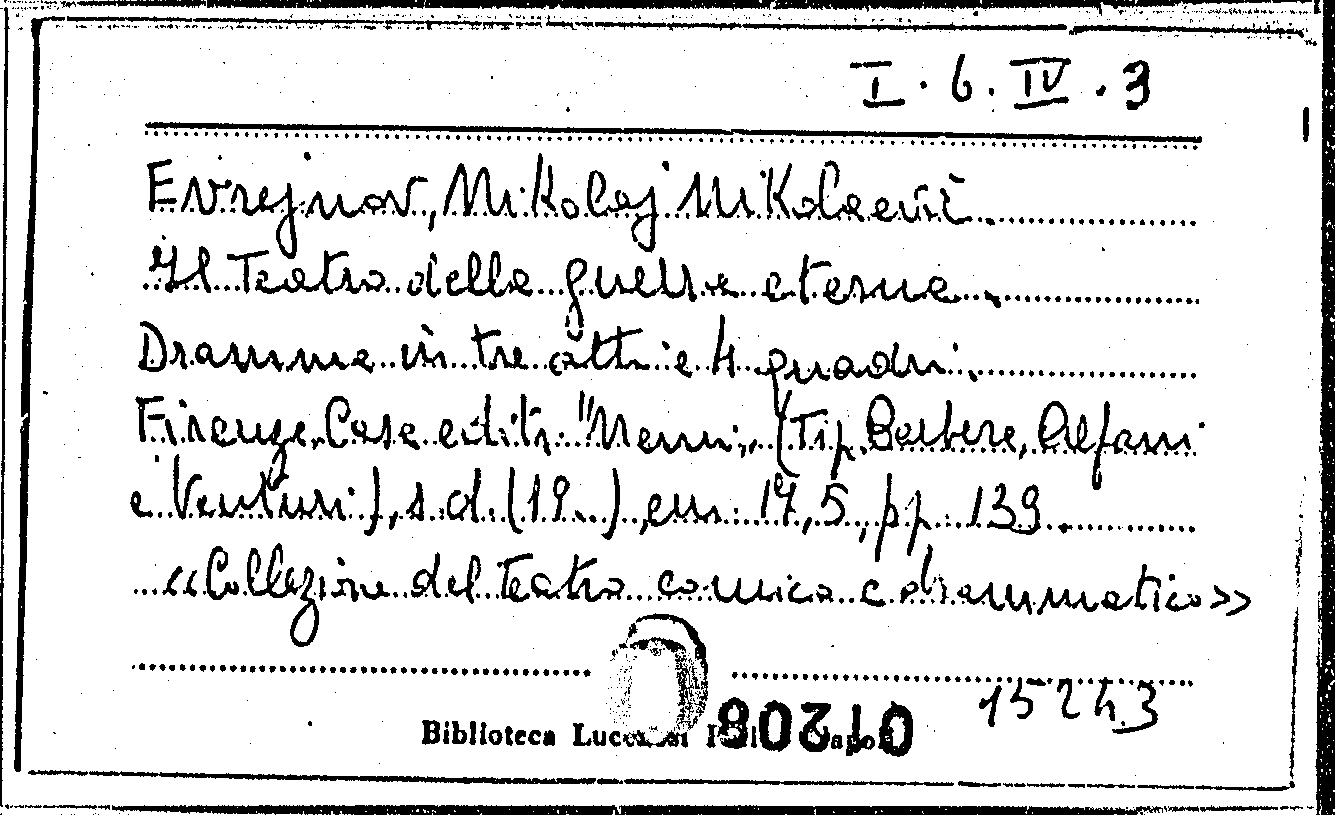 I. 6. IV. 3
Evrejnov, Nikolaj Nikolaevič.
Il Teatro della guerra eterna.
Dramma in tre atti e 4 quadri.
Firenze, Casa editr. "Nemi", (Tip. Barbera, Alfani
e Venturi), s.d. (19..), cm. 17,5, pp. 139.
«Collezione del Teatro comico e drammatico»
15243
Biblioteca 80210